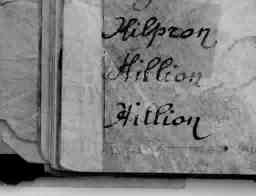 Hilpron
Hillion
Hillion